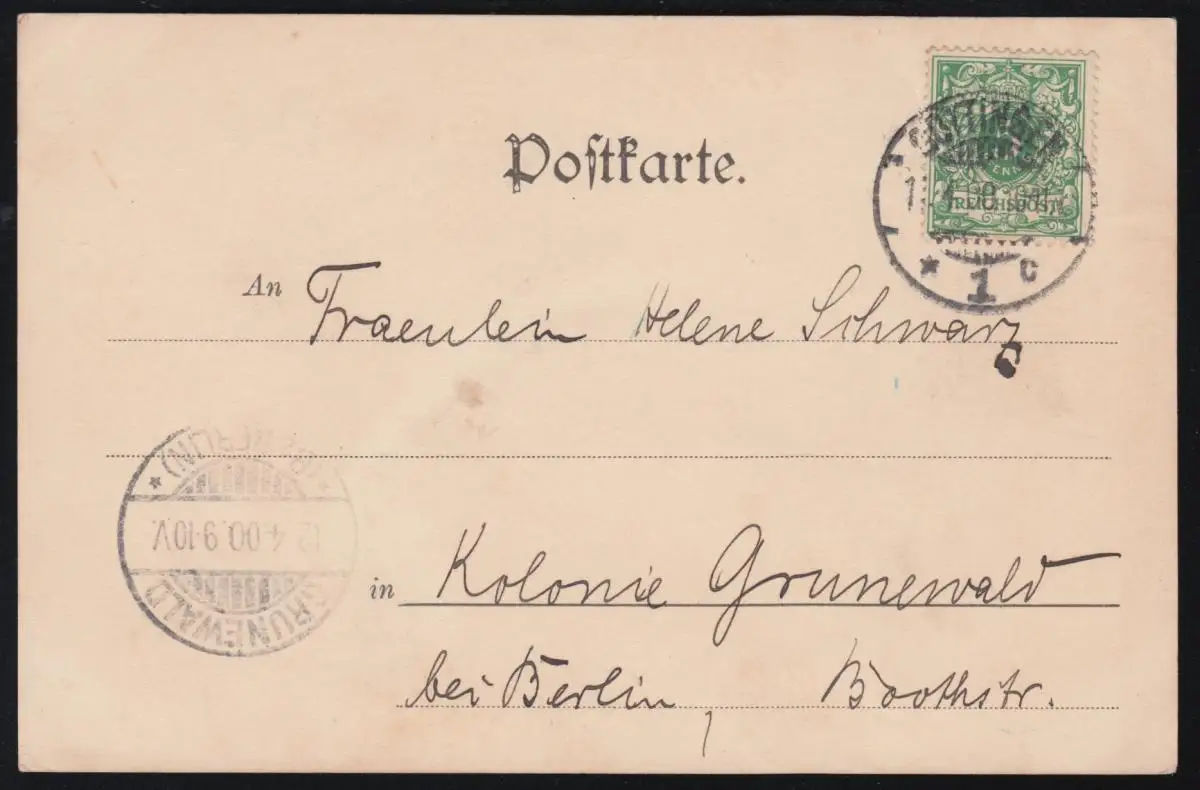 Postkarte.
GÖTTINGEN
REICHSPOST
* 1 c
An Fraeulein Helene Schwarz
(BZ. BERLIN)
12 4.00.9-10V.
GRUNEWALD
in Kolonie Grunewald
bei Berlin, Boothstr.